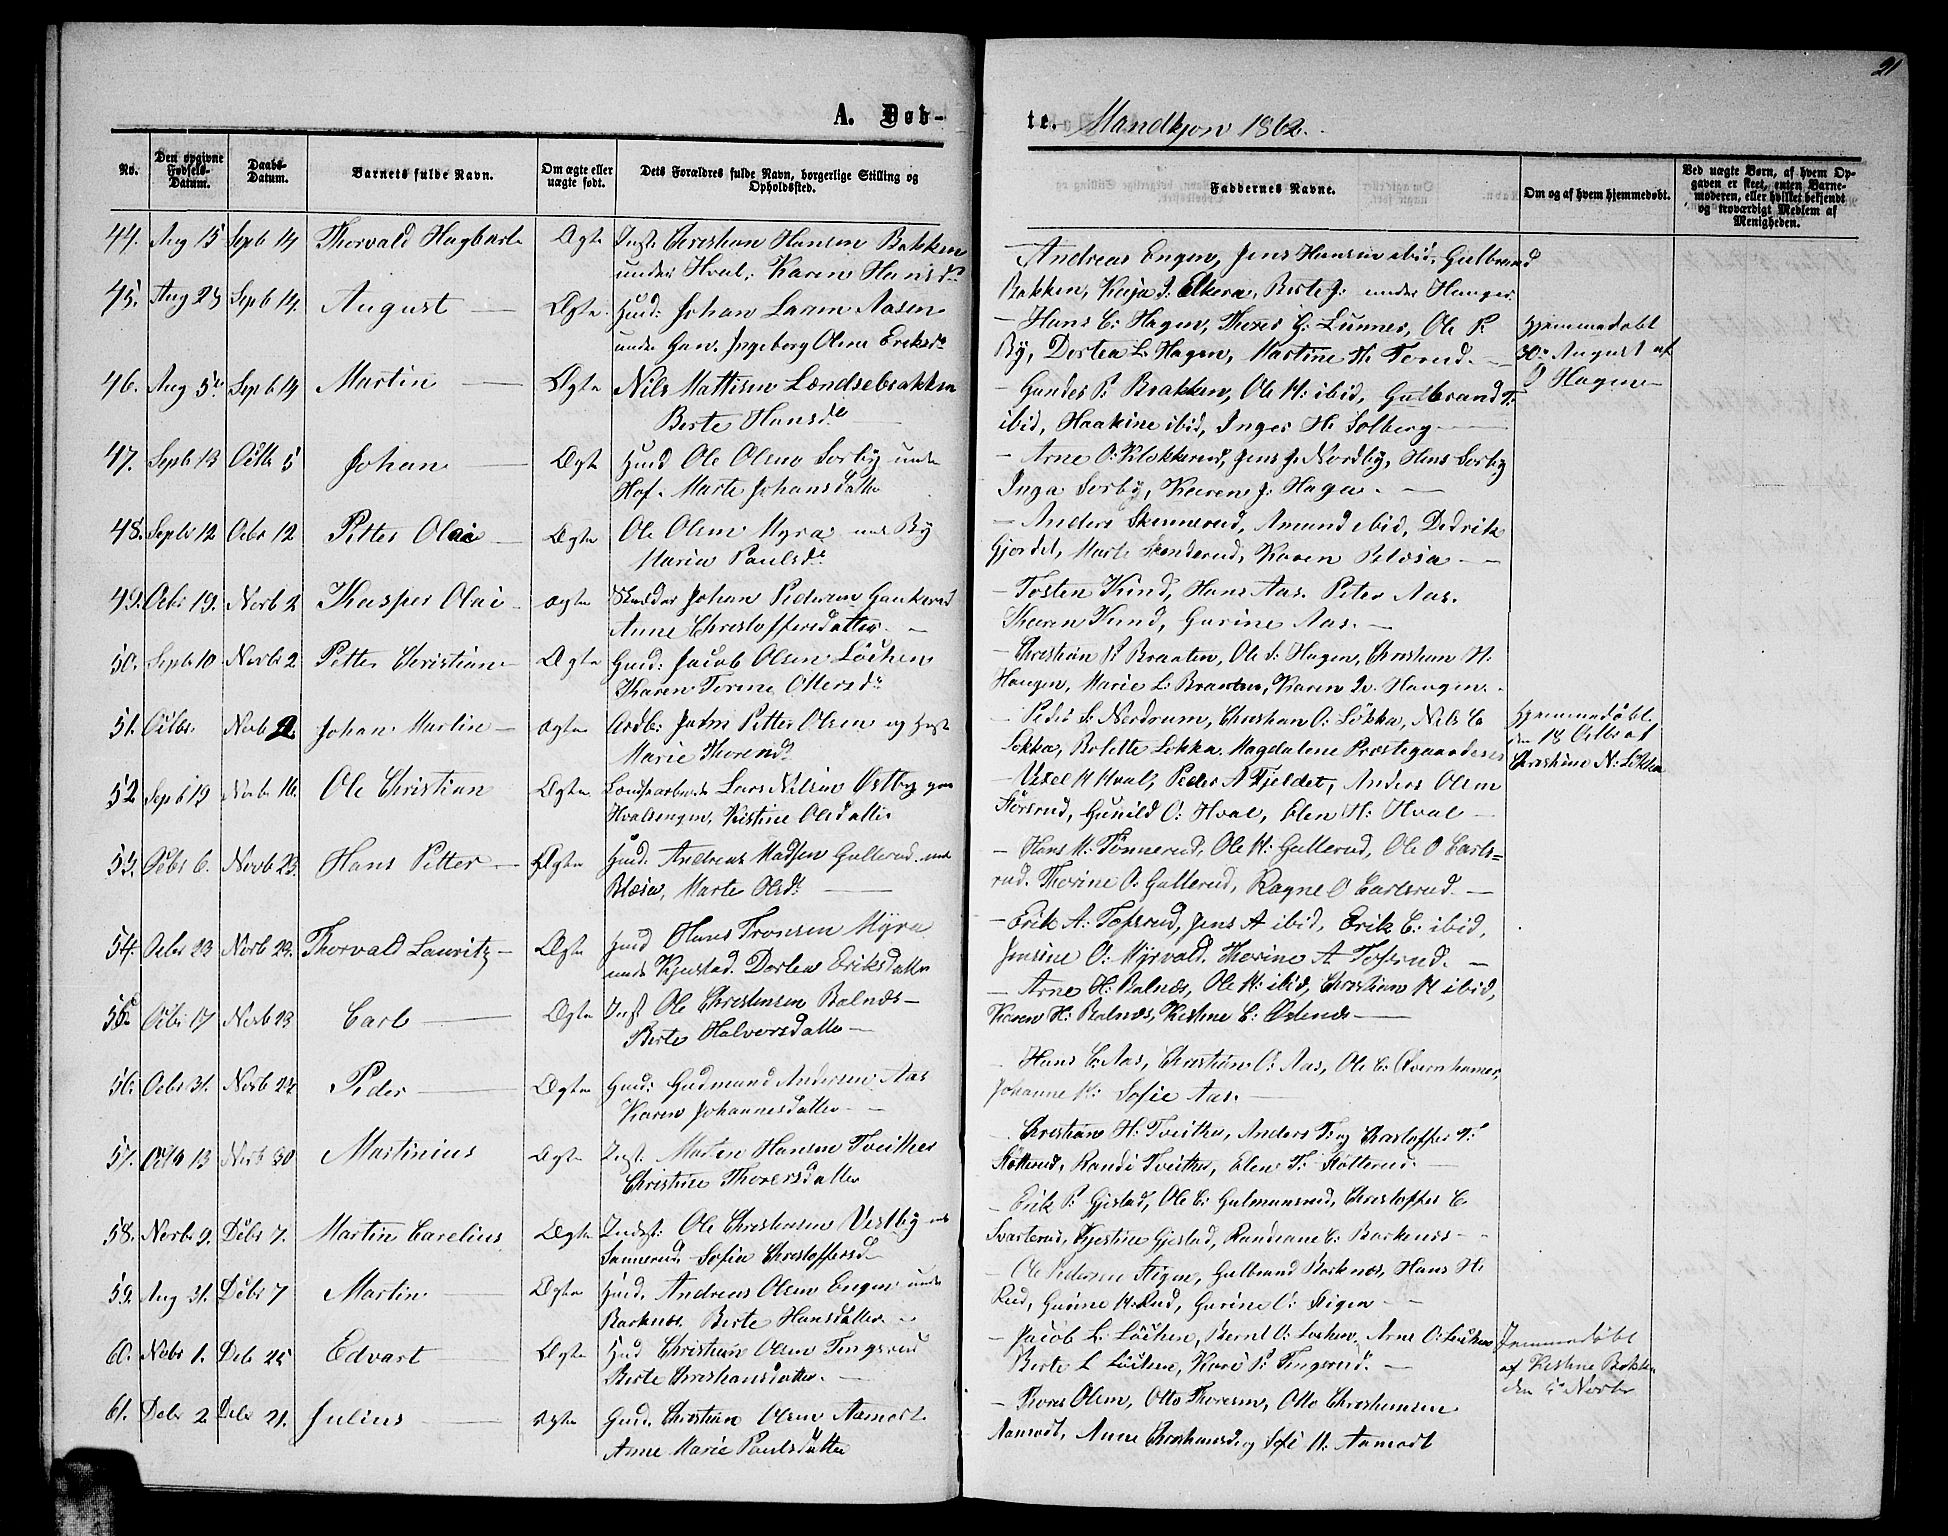 21
A. Døb-
te. Mandkjøn 1862.
No.
Den opgivne Fødsels-Datum.
Daabs-Datum.
Barnets fulde Navn.
Om ægte eller uægte født.
Dets Forældres fulde Navn, borgerlige Stilling og Opholdssted.
Faddernes Navne.
Om og af hvem hjemmedøbt.
Ved uægte Børn, af hvem Opgaven er skeet, enten Barnemoderen, eller hvilket bekjendt og troværdigt Medlem af Menigheden.
44. Aug 15 Septb 14 Thorvald Hagbart Ægte Inst Christian Hansen Bakken
under Hval, Karen Hansd.
Andreas Engen, Jens Hansen ibid, Gulbrand
Bakken, Kaja J: Elkera, Berte J: under Hauger.
45. Aug 23 Septb 14. August Ægte Husd: Johan Larsen Aasen
under Gav. Ingeborg Olene Eriksd
Hans C: Hagen, Thores G: Lunner, Ole P:
By, Dortea L: Hagen, Martine H:
Hjemmedøbt
30 August af
Hagen
46. Aug 5 Septb 14 Martin Ægte Nils Mattisen Lændsebrakken
Berte Hansd
P: Brakken, Ole H: ibid, Gulbrand T:
ibid, Haakine ibid, Inger H: Solberg
47. Septb 13 Octb 5 Johan Ægte Husd Ole Olsen Sørby under
Hof. Marte Johansdatter
Arne O: Klokkerud, Jens J: Nordby, Hans Sørby
Inga Sørby, Karen J: Haga.
48. Septb 12 Ocbr 12 Petter Olai Ægte Ole Olsen Myra und By
Maria Paulsd
Anders Skjennerud, Amund ibid, Dedrik
Gjordet, Marte Skjenderud, Karen Blæsia
49. Ocbr 19. Novb 2 Kasper Olai Ægte Skredder Johan Pedersen
Anne Christoffersdatter.
Tosten Kind, Hans Aas. Peter Aas.
Karen Kind, Gurine Aas.
50. Septb 10 Novb 2 Petter Christian Ægte Husd: Jacob Olsen Löchen
Karen Ottersd
Christian P: Braaten, Ole S: Hagen, Christian H:
Haugen, Marie L: Braaten, Karen Haugen.
51. Octbr. Novb 2. Johan Martin Ægte Ardb: John Petter Olsen og Hust
Marie Thorend
Peder S: Nordrum, Christian O: Løkka, Nils C
Løkka, Bolette Løkka Magdalene Præstegaarden
Hjemmedøbt
den 18 Octb af
Christine N: Løkka
52 Septb 19 Novb 16. Ole Christian Ægte Lars Nilsen Østby
Hvalsengen, Kistine Olsdatter
Axel H Hval, Peder A Fjeldet, Anders Olsen
Gunild O: Hval, Elen H: Hval
53. Ocbr 6. Novb 23. Hans Petter Ægte Husd. Andreas Madsen Gullerud und
Blæsia, Marte Olsd
Hans M: Tønnerud, Ole H: Gullerud, Ole O Carls=
rud. Thorine O: Gullerud, Ragne O Carlsrud.
54. Ocbr 23 Novb 23. Thorvald Lauritz Ægte Husd Hans Tronsen Myra
und Kjustad. Dortea Eriksdatter
Erik A: Tofsrud, Jens A ibid, Erik C: ibid,
Jensine O: Myrvald. Thorine A. Tofsrud.
55 Ocbr 17 Novb 23 Carl Ægte Inst Ole Christensen Balnæs
Berte Halvorsdatter
Arne H: Balnæs, Ole H: ibid, Christian H ibid,
Karen H: Balnæs, Kistine C: Østenæs
56. Ocbr 31. Novb 23 Peder Ægte Husd: Gudmund Andersen Aas
Karen Johannesdatter
Hans C: Aas, Christian O: Aas, Ole C: Qvernhamer,
Johanne H: Sofie Aas.
57. Octb 13 Novb 30 Martinius Ægte Inst. Morten Hansen Tveither
Christine Thoversdatter
Christian H: Tveither, Anders T: og Christoffer T:
Støtterud, Randi Tveither, Elen T: Støtterud
58. Novb 9. Debr 7. Martin Carelius Ægte Indst: Ole Christensen Vestby und
Sannerud. Sofia Christoffersd
Erik P. Gjestad, Ole C: Gulmansrud, Christoffer C
Svarterud, Kjestine Gjestad, Randiane C: Barknæs
59. Aug 31. Debr 7 Martin Ægte Husd. Andreas Olsen Engen under
Barknæs. Berte Hansdatter
Ole Pedersen Stigen, Gulbrand Barknæs, Hans H:
Rud, Gunine H: Rud, Gurine O: Stigen
60. Nobr 1. Debr 25 Edvart Ægte Husd Christian Olsen Tingsrud
Berte Christiansdatter.
Jacob L: Löchen, Bernt O: Lochen, Arne O: Lochen
Berte L Lochen, Kari P: Tingsrud.
Jemmedøbt
af Kistine Bakke
den 5 Novbr
61. Debr 2 Debr 21. Julius Ægte Husd. Christian Olsen Aamodt
Anne Marie Paulsdatter
Thores Olsen, Otto Thoresen, Otto Christiansen
Aamodt, Anne Christiansd og Sofi H. Aamodt